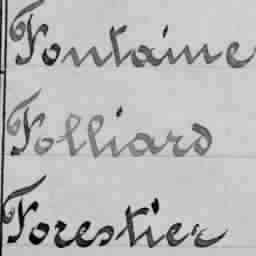 Fontaine
Folliard
Forestier